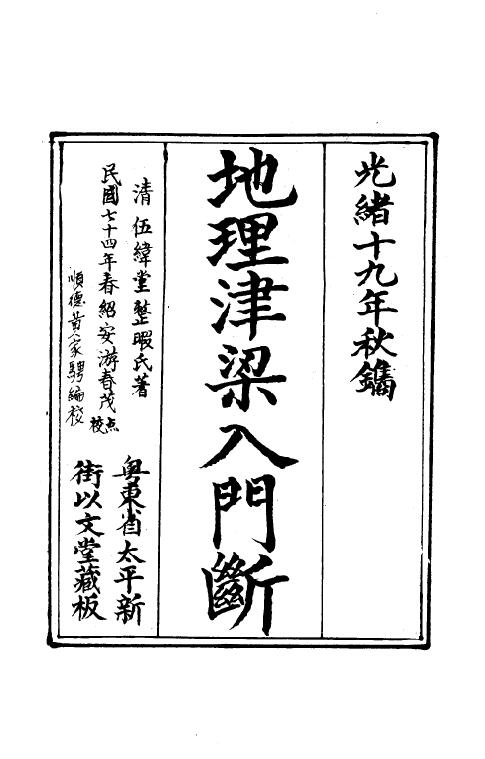 光緒十九年秋鐫
地理津梁入門斷
清 伍緯堂整暇氏著
民國七十四年春紹安游春茂点校
順德黄家騁編校
粤東省太平新
街以文堂藏板